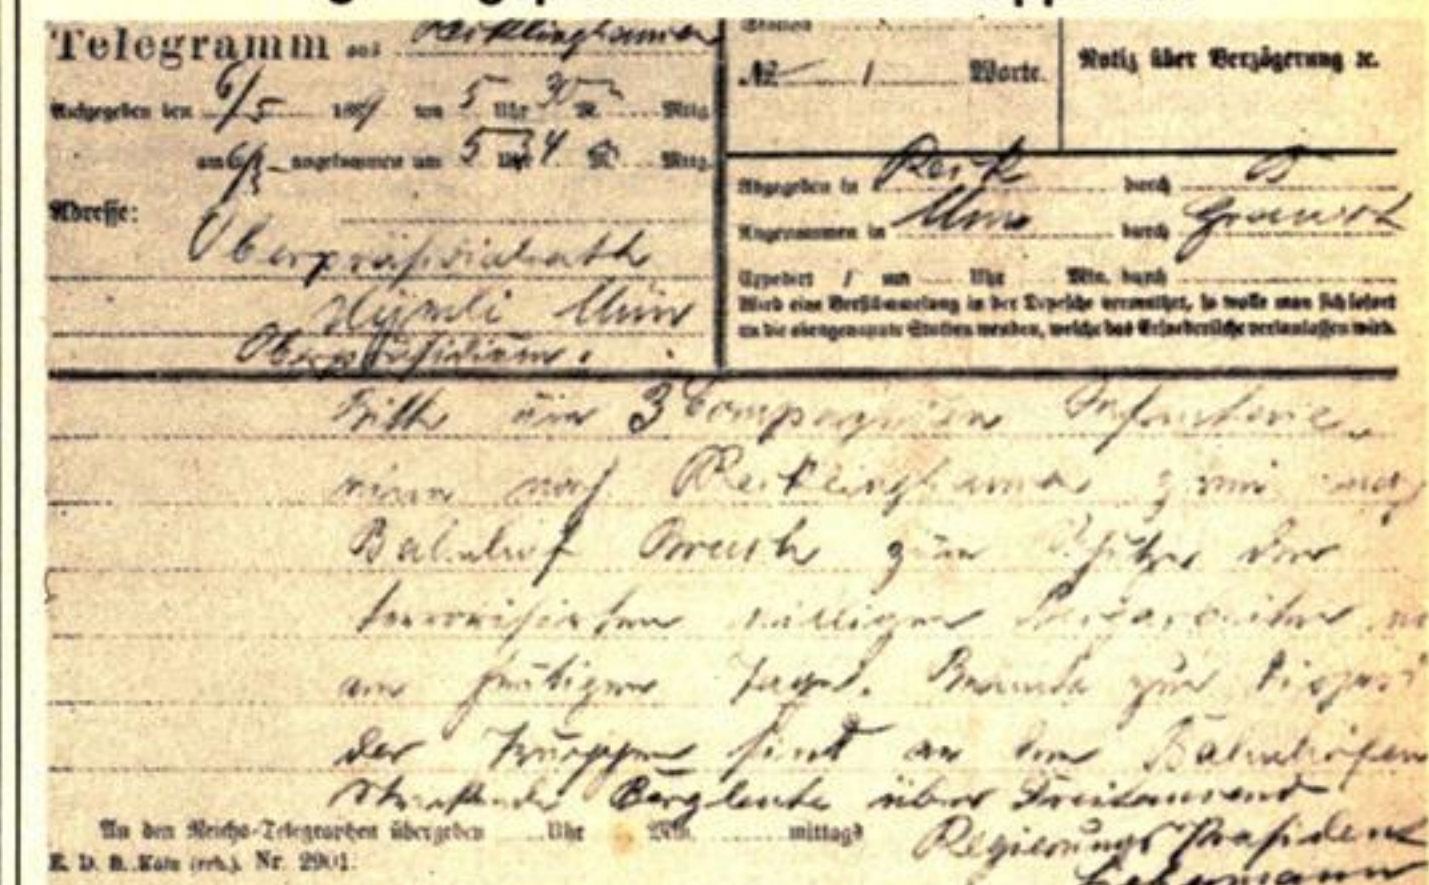 Telegramm aus Recklinghausen
Aufgegeben den 6/5 1889 um 5 Uhr 30 M. Mttg.
am 6/5 angekommen um 5 Uhr 34 M. Mttg.
Adresse:
Oberpräsidialrath
Oberpräsidium.
Station
№ 1 Worte.
Notiz über Verzögerung ꝛc.
Abgegeben in Reckl durch
Angenommen in Mün durch
Expedirt / um Uhr Min. durch
Wird eine Verstümmelung in der Depesche vermuthet, so wolle man sich sofort
an die obengenannte Station wenden, welche das Erforderliche veranlassen wird.
Bitte um 3 Compagnien Infanterie
nach Recklinghausen
Bahnhof Bruch zum Schutze der
terrorisierten williger Bergarbeiter
am heutigen Tage. Beamte zur
der Truppen sind an den Bahnhöfen
Streikende Bergleute über Dreitausend
Regierungs Präsident
An den Reichs-Telegraphen übergeben Uhr Min. mittags
E. D. B. Köln (rrh.). Nr. 2901.